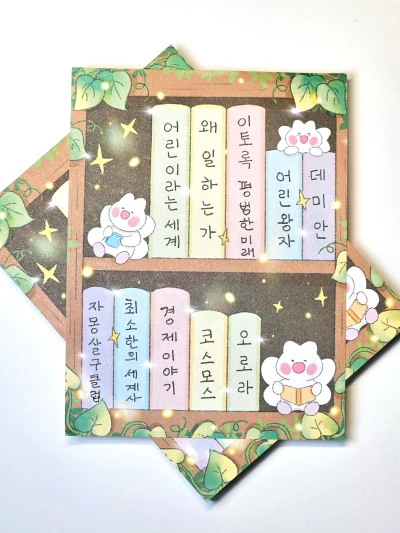 어린이라는 세계
왜 일하는가
이토록 평범한 미래
어린 왕자
데미안
자몽살구클럽
최소한의 세계사
경제 이야기
코스모스
오로라